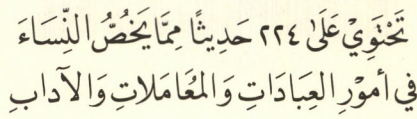 تَحْتَوِيْ عَلَىٰ ٢٢٤ حَدِيثًا مِمَّا يَخُصُّ النِّسَاءَ
فِي أمُوْرِ العِبَادَاتِ وَالمُعَامَلاتِ وَالآدَابِ